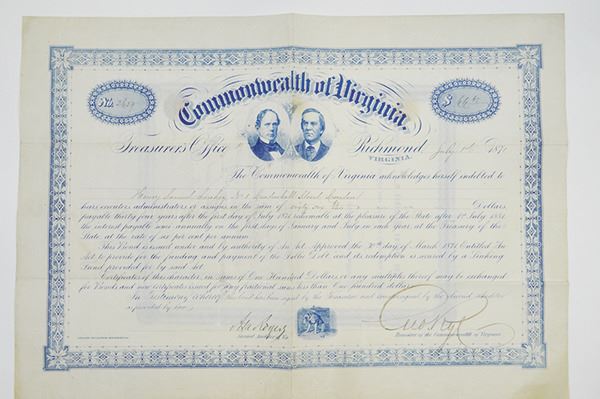 Commonwealth of Virginia.
No.
$
Treasurer's Office Richmond July 1st 187
VIRGINIA.
The Commonwealth of Virginia acknowledges herself indebted to
Henry Street London
executors administrators or assigns in the sum of Dollars
payable thirty four years after the first day of July 1871 redeemable at the pleasure of the State after 1st July 1881
the interest payable semi annually on the first days of January and July in each year at the Treasury of the
State at the rate of six per cent per annum
This Bond is issued under and by authority of An Act Approved the 30th day of March 1871 Entitled An
Act to provide for the funding and payment of the Public Debt and its redemption is secured by a Sinking
Fund provided for by said Act
Certificates of this character, in sums of One Hundred Dollars or any multiple thereof may be exchanged
for Bonds and new certificates issued for any fractional sums less than One hundred dollars
In Testimony whereof this bond has been signed by the Treasurer and countersigned by the Second Auditor
as provided by law
Asa Rogers
Second Auditor of Va
Treasurer of the Commonwealth of Virginia